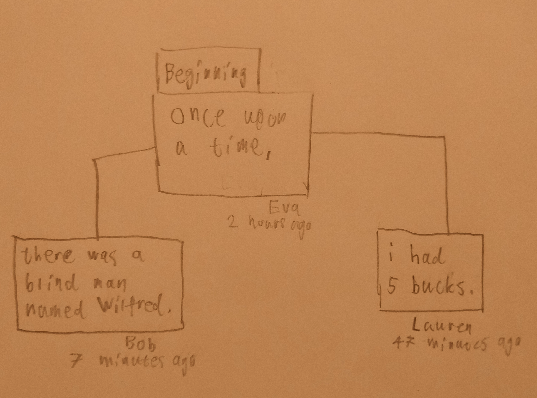 Beginning
once upon
a time,
Eva
2 hours ago
there was a
blind man
named Wilfred.
Bob
7 minutes ago
i had
5 bucks.
Lauren
47 minutes ago